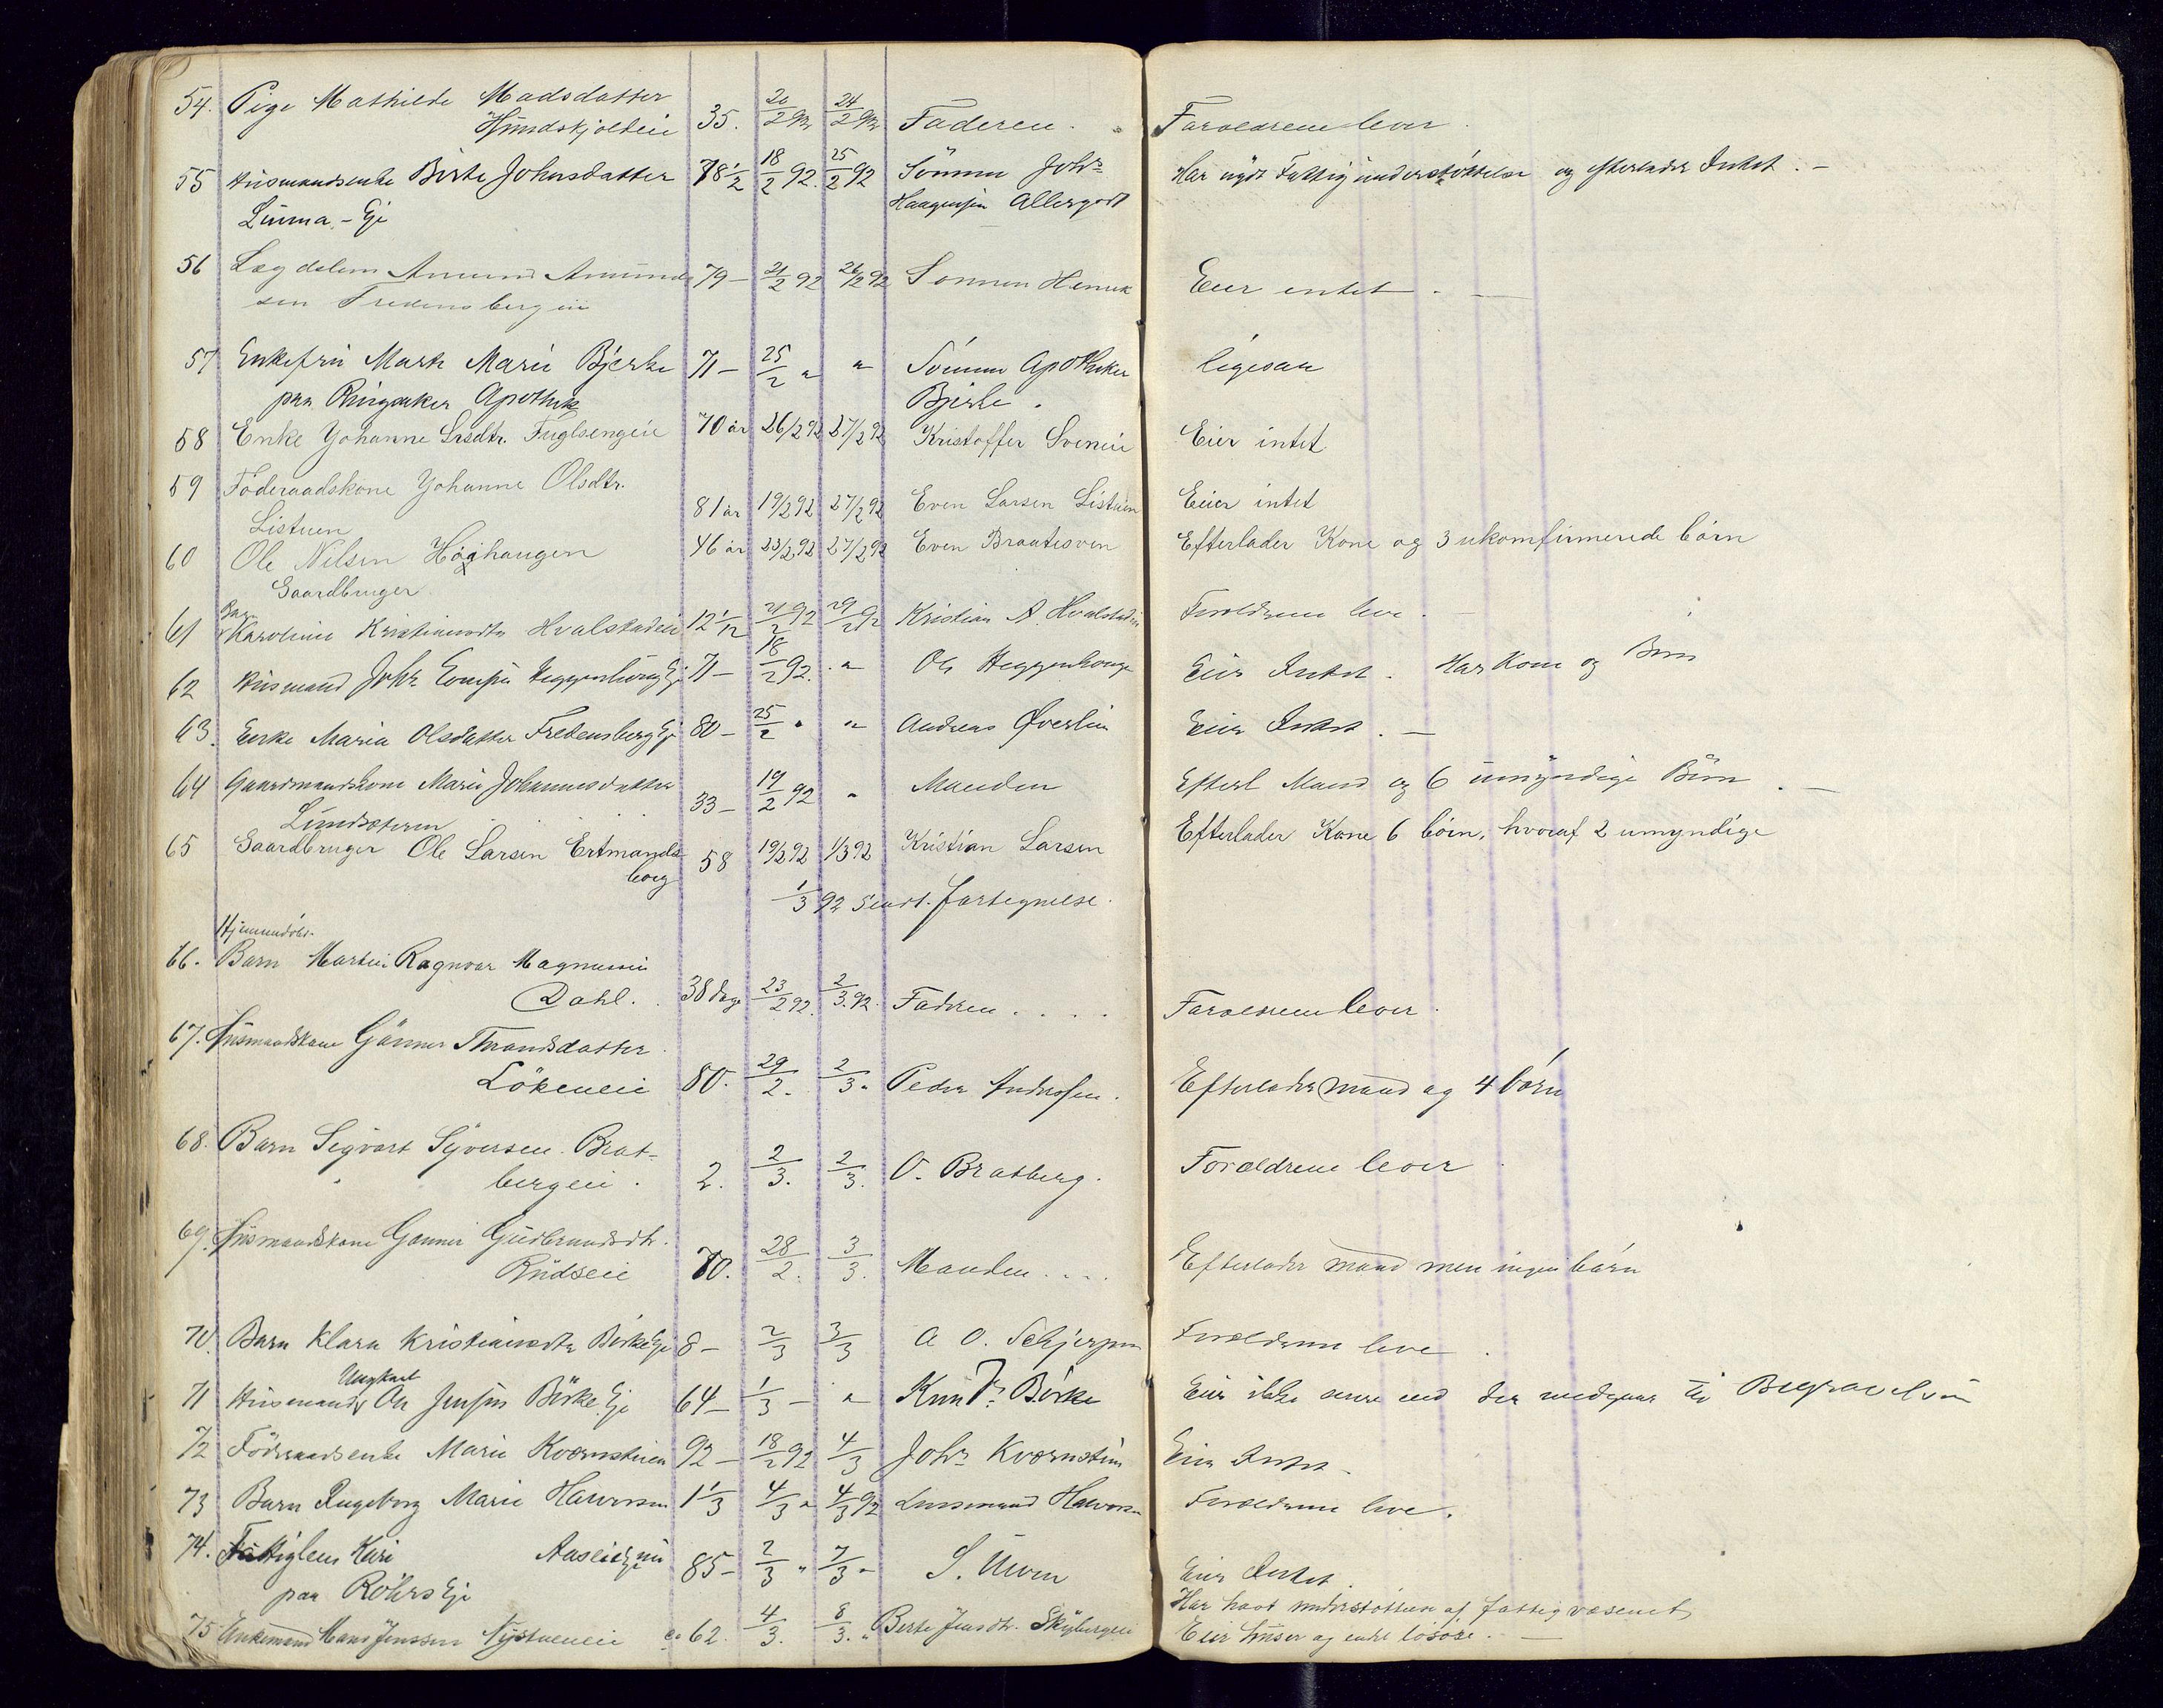 54. Pige Mathilde Madsdatter
Hundskjoldeie 35. 20/2 92 24/2 92 Faderen. Foraeldrene lever.
55 Husmandsenke Birte Johnsdatter 78 1/2 18/2 92. 25/2 92 Sönnen Johs
Linma - Eje Haagensen Allergodt
Har nydt Fattigunderstøttelse og efterlader Intet. -
56 Lægdslem Amund Amund- 79 - 21/2 92 26/2 92 Sønnen Henrik Eier entet. -
sen Fredensbergeie
57 Enkefru Marte Marie Bjerke 71 - 25/2 " " Sönnen Apotheker ligesaa
paa Ringsaker Apothek Bjerke.
58 Enke Johanne Larsdtr. Fuglsengeie 70 år 26/2 92 27/2 92 Kristoffer Sveneie Eier intet
59 Föderaadskone Johanne Olsdtr.
Listuen 81 år 19/2 92 27/2 92 Even Larsen Listuen Eier intet
60 Ole Nilsen Høghaugen 46 år 23/2 92 27/2 92 Even Braatesven Efterlader Kone og 3 ukomfirmerede börn
Gaardbruger
61 Barn Karoline Kristiansdtr Hvalstadeie 12 1/12 21/2 92 29/2 92 Kristian A. Hvalstadeie Foreldrene leve. -
62 Husmand Johs Evensen Heggenhoug Ej 71 - 18/2 92. " Ole Heggenhouge Eier Intet. Har Kone og Börn
63. Enke Maria Olsdatter Fredensberg Ej 80 - 25/2 " " Andreas Øverlien Eier Intet. -
64 Gaardmandskone Marie Johannesdatter 33 - 19/2 92 " Manden Efterl Mand og 6 umyndige Börn. -
Lundsæteren
65 Gaardbruger Ole Larsen Ertmands- 58 19/2 92 1/3 92 Kristian Larsen Efterlader Kone 6 börn, hvoraf 2 umyndige
borg
1/3 92 Sendt fortegnelse.
Hjemmedöbt
66. Barn Martin Ragnvar Magnussen
Dahl. 38 dage 23/2 92. 2/3. 92. Faderen.... Foraeldrene lever.
67. Husmandskone Gunner Thrandsdatter
Lökeneie 80. 29/2. 2/3 " Peder Andersen. Efterlader mand og 4 börn
68. Barn Sigvart Syversen Brat-
bergeie. 2. 2/3. 2/3. O. Bratberg. Forældrene lever
69. Husmandskone Gunner Gudbrandsdtr.
Rudseie 70. 28/2. 3/3. Manden.... Efterlader mand men ingen börn
70. Barn Klara Kristiansdtr Birke Ej 8 - 2/3 3/3 A O. Schjerpen Foreldrene leve.
Ungkarl
71 Husmand Ole Jensen Birke Ej 64 - 1/3 - " Knut Birke Eier ikke mere end der medgaar til Begravelsen
72 Föderaadsenke Marie Kværnstuen 92 - 18/2 92 4/3 Johs Kværnstuen Eier Intet -
73 Barn Ingeborg Marie Halvorsen 1 1/3 4/3 " 4/3 92 Lensmand Halvorsen Foreldrene leve.
74. Fattiglem Kari Aaseie 85 - 2/3 " 7/3 " S. Ulven Eier Intet.
paa Röhrs Eje
Har havt understöttelse af fattigvæsenet
75 Enkemand Hans Jenssen Nystueneie ca 62. 4/3. 8/3. " Berte Jensdtr. Skybergeie Eier huser og endel lösöre. -